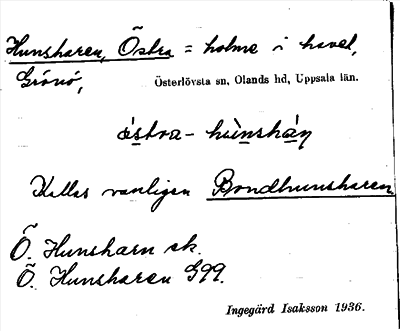 Hunsharen, Östra = holme i havet,
Gråsö, Österlövsta sn, Olands hd, Uppsala län.
ástra- hùnshán
Kallas vanligen Bondhunsharen
Ö. Hunsharn ek.
Ö. Hunsharen G99.
Ingegärd Isaksson 1936.